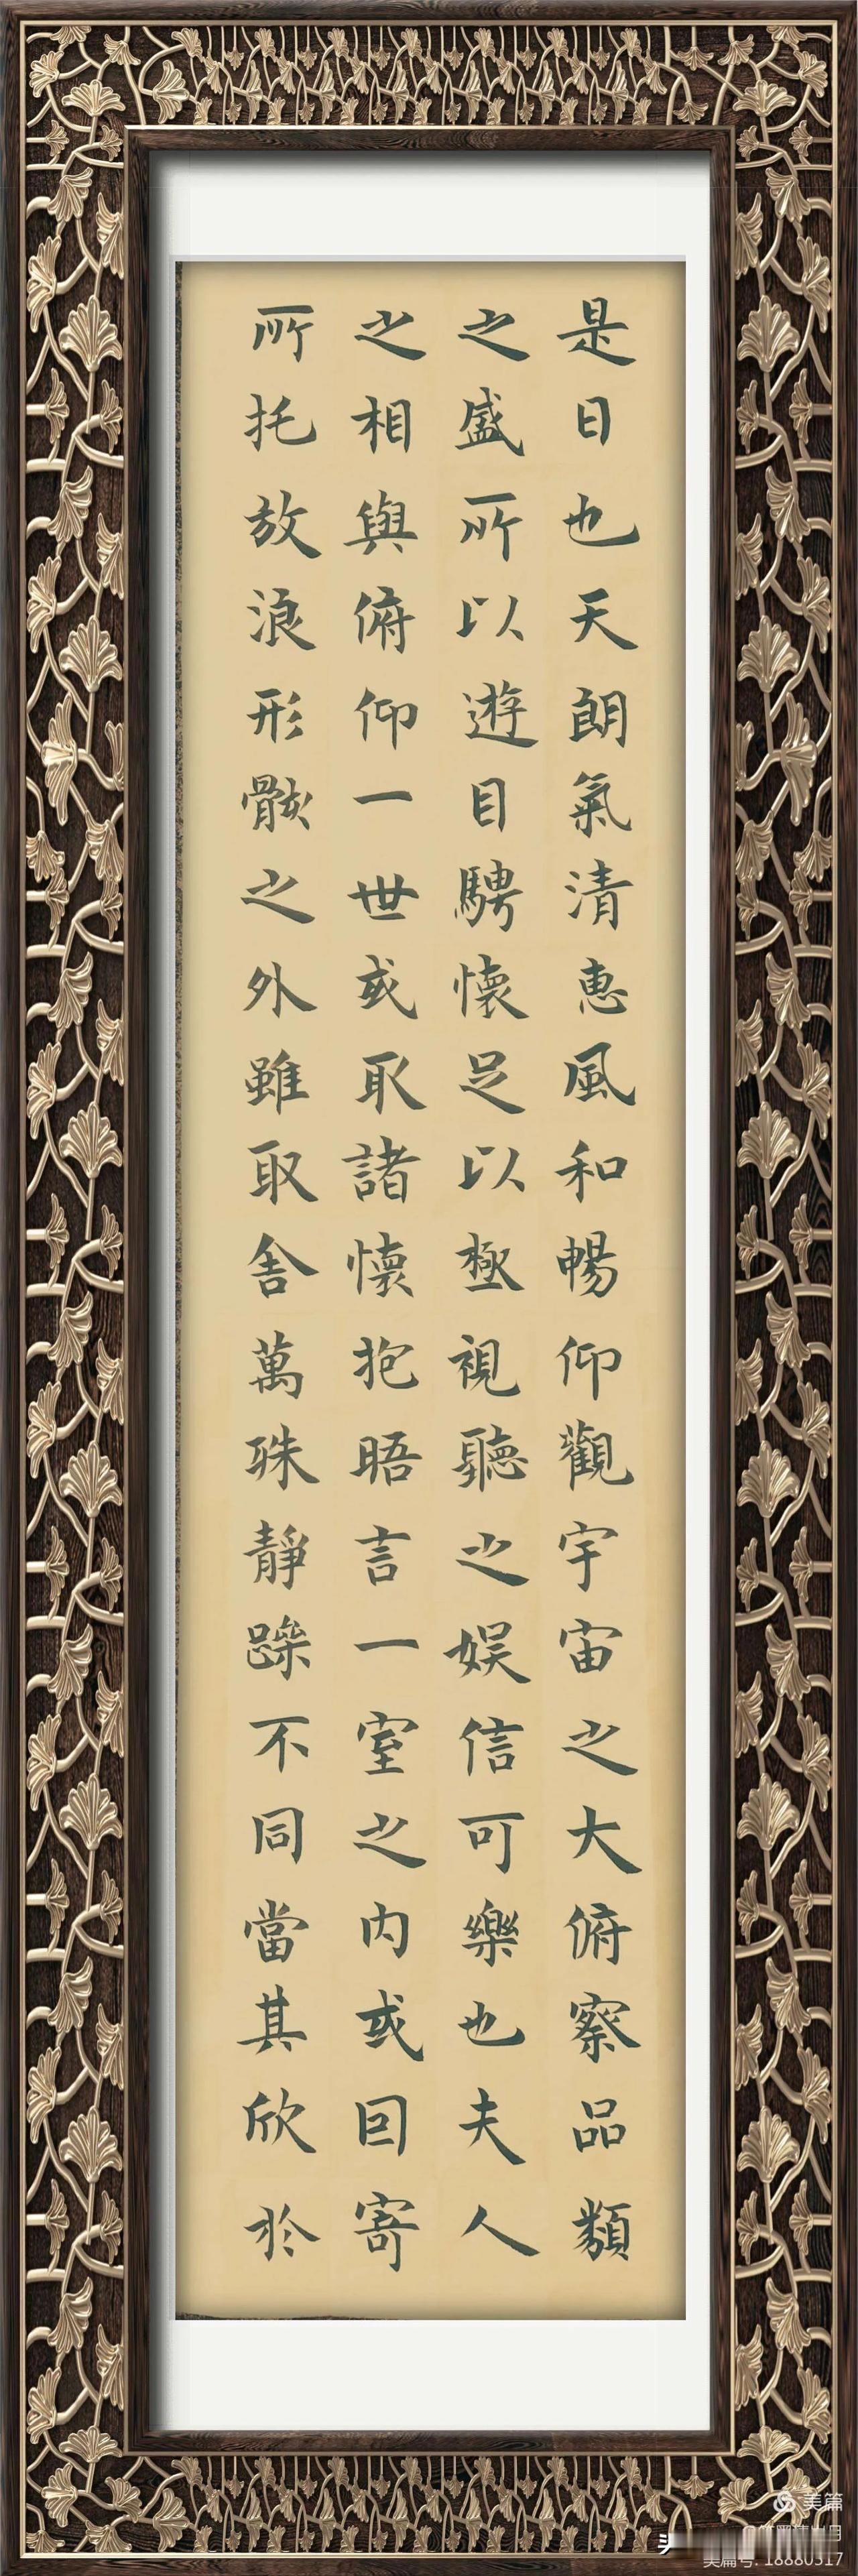 是日也天朗氣清惠風和暢仰觀宇宙之大俯察品類
之盛所以遊目騁懷足以極視聽之娱信可樂也夫人
之相與俯仰一世或取諸懷抱晤言一室之内或囙寄
所托放浪形骸之外雖取舍萬殊靜躁不同當其欣於
美篇
美篇号: 18880317